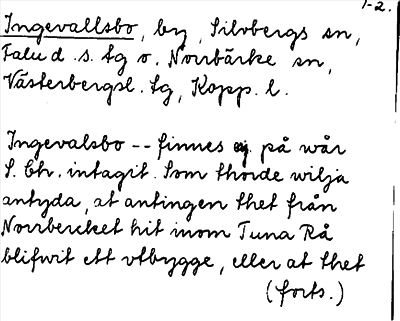 1-2.
Ingevallsbo, by, Silvbergs sn,
Falu d. s. tg o. Norrbärke sn,
Västerbergsl. tg, Kopp. l.
Ingevalsbo -- finnes ej på wår
S. Ch. intagit. Som thorde wilja
antyda, at antingen thet från
Norrbercket hit inom Tuna Rå
blifwit ett vtbygge, eller at thet
(forts.)